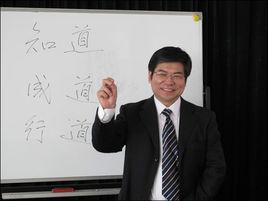 知道
成道
行道